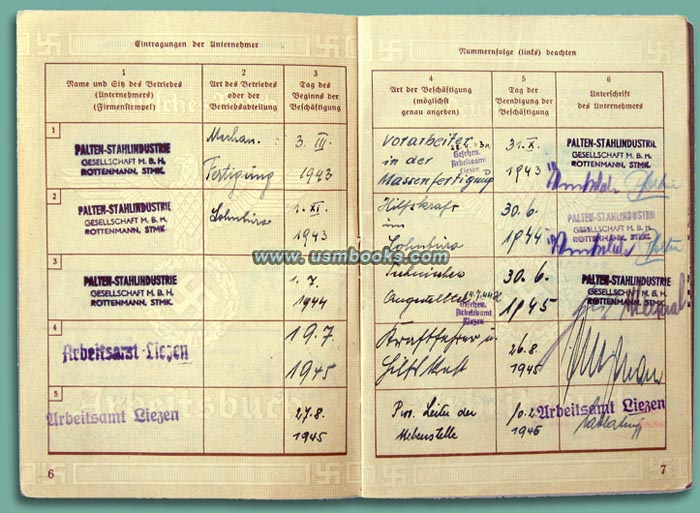 Eintragungen der Unternehmer
1
Name und Sitz des Betriebes
(Unternehmers)
(Firmenstempel)
2
Art des Betriebes
oder der
Betriebsabteilung
3
Tag des
Beginns der
Beschäftigung
1
PALTEN-STAHLINDUSTRIE
GESELLSCHAFT M. B. H.
ROTTENMANN, STMK.
Mechan.
Fertigung
3. III.
1943
2
PALTEN-STAHLINDUSTRIE
GESELLSCHAFT M. B. H.
ROTTENMANN, STMK.
Lohnbüro
1. XI.
1943
3
PALTEN-STAHLINDUSTRIE
GESELLSCHAFT M. B. H.
ROTTENMANN, STMK.
1. 7.
1944
4
Arbeitsamt Liezen
19.7.
1945
5
Arbeitsamt Liezen
27.8.
1945
6
www.usmbooks.com
Arbeitsbuch
Nummernfolge (links) beachten
4
Art der Beschäftigung
(möglichst
genau angeben)
5
Tag der
Beendigung der
Beschäftigung
6
Unterschrift
des Unternehmers
Vorarbeiter
in der
Massenfertigung
Gesehen.
Arbeitsamt
Liezen
31. X.
1943
PALTEN-STAHLINDUSTRIE
GESELLSCHAFT M. B. H.
ROTTENMANN, STMK.
Hilfskraft
im
Lohnbüro
30. 6.
1944
PALTEN-STAHLINDUSTRIE
GESELLSCHAFT M. B. H.
ROTTENMANN, STMK.
Technischer
Angestellter
Gesehen.
Arbeitsamt
Liezen
30. 6.
1945
PALTEN-STAHLINDUSTRIE
GESELLSCHAFT M. B. H.
ROTTENMANN, STMK.
Kraftfahrer u.
Hilfskraft
26.8.
1945
Leiter der
Nebenstelle
10.2.
1946
Arbeitsamt Liezen
7